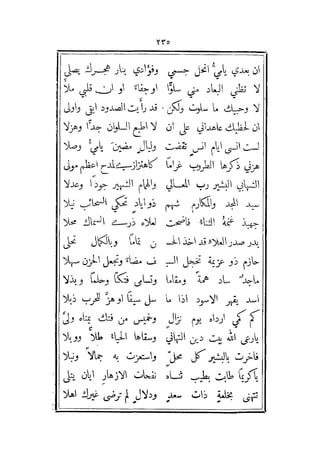 ٢٣٥
ان بعدي يامي انحل جسمي وفؤادي بنار هجرك يصلى
لا تظني البعاد مني سلوًّا او جفاءً او ان قلبي ملاَّ
لا وحبيك ما سلوت ولكن قد رأيت الصدود ابقى واولى
ان لحظيك عاهداني على ان لا اطيع السلوان جدًّا وهزلا
لست انسى ايام انس تقضت وليالٍ مضين يامي وصلا
هزني ذكرها الطروب غرامًا كاهتزازي لمدح اعظم مولى
الشهابي البشير رب المعالي والهمام الشهير جودًا وعدلا
سيد المجد والمكارم شهم ذو اياد تحكي السحائب نيلا
جهبذ غنمهُ الثناءُ فاضحت لعلاه ذرى السماك محلا
بدر صدر العلاء قد اخذ الحسـ ـن تمامًا وبالكمال تحلى
حازم ذو عزيمة تخجل السيـ ـف مضاءً وتجعل الحزن سهلا
ماجدٌ ساد همةً ومقاما وتسامى فتكًا وحلمًا وبذلا
اسد يقهر الاسود اذا ما سل سيفًا او هزَّ للحرب ذبلا
كم كمي ارداه يوم نزالٍ وخميس من فتك يمناه ولَّى
يارعى الله بيت دين التهاني وسقاها الحياءُ طلاًّ ووبلا
فاخرت بالبشير كل محلٍّ واستعزت به جمالاً ونبلا
ياكريمًا طابت بطيب ثناه نفحات الازهار ايان يتلى
تتهنى بخلعةٍ ذات سعدٍ ودلالٍ لم ترضَ غيرك اهلا